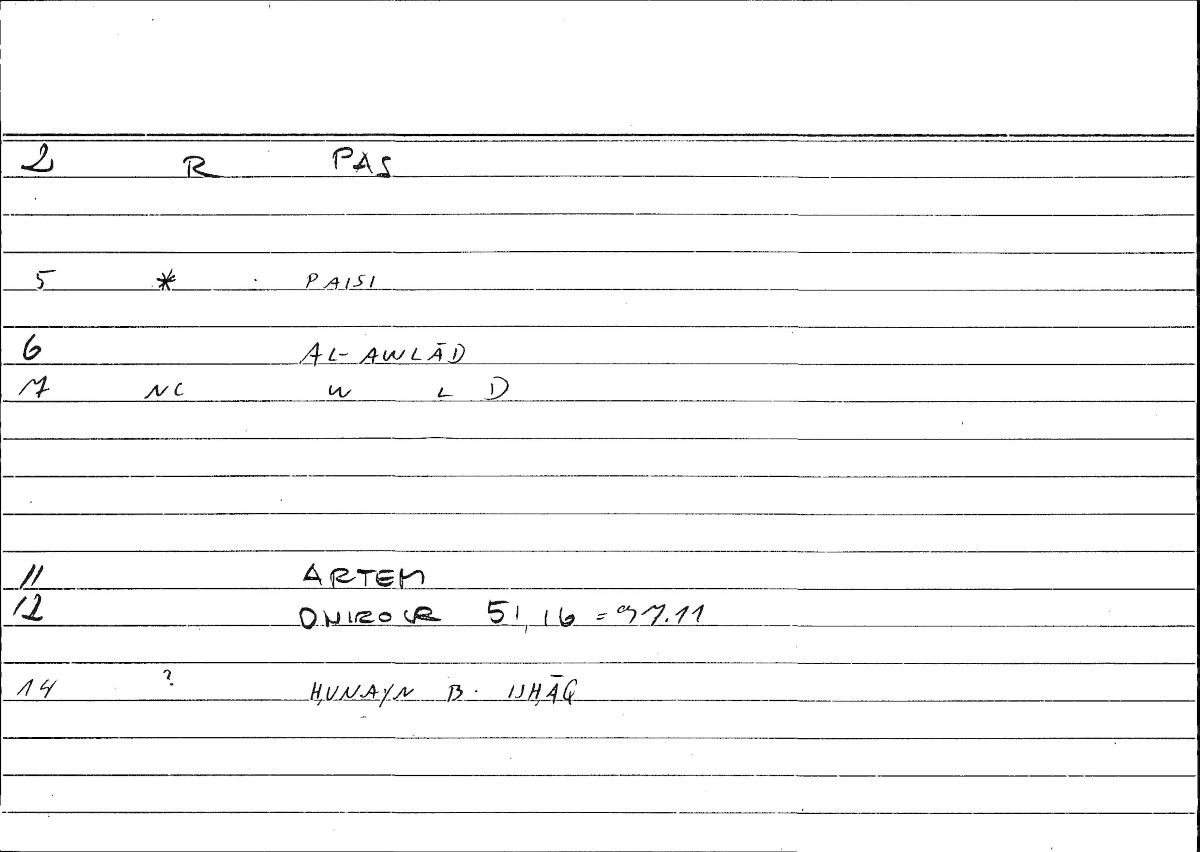 2 R PAS
5 * PAISI
6 AL-AWLĀD
7 NC W L D
11 ARTEM
12 ONIROCR 51,16 = 97.11
14 ? ḤUNAYN B. ISḤĀQ